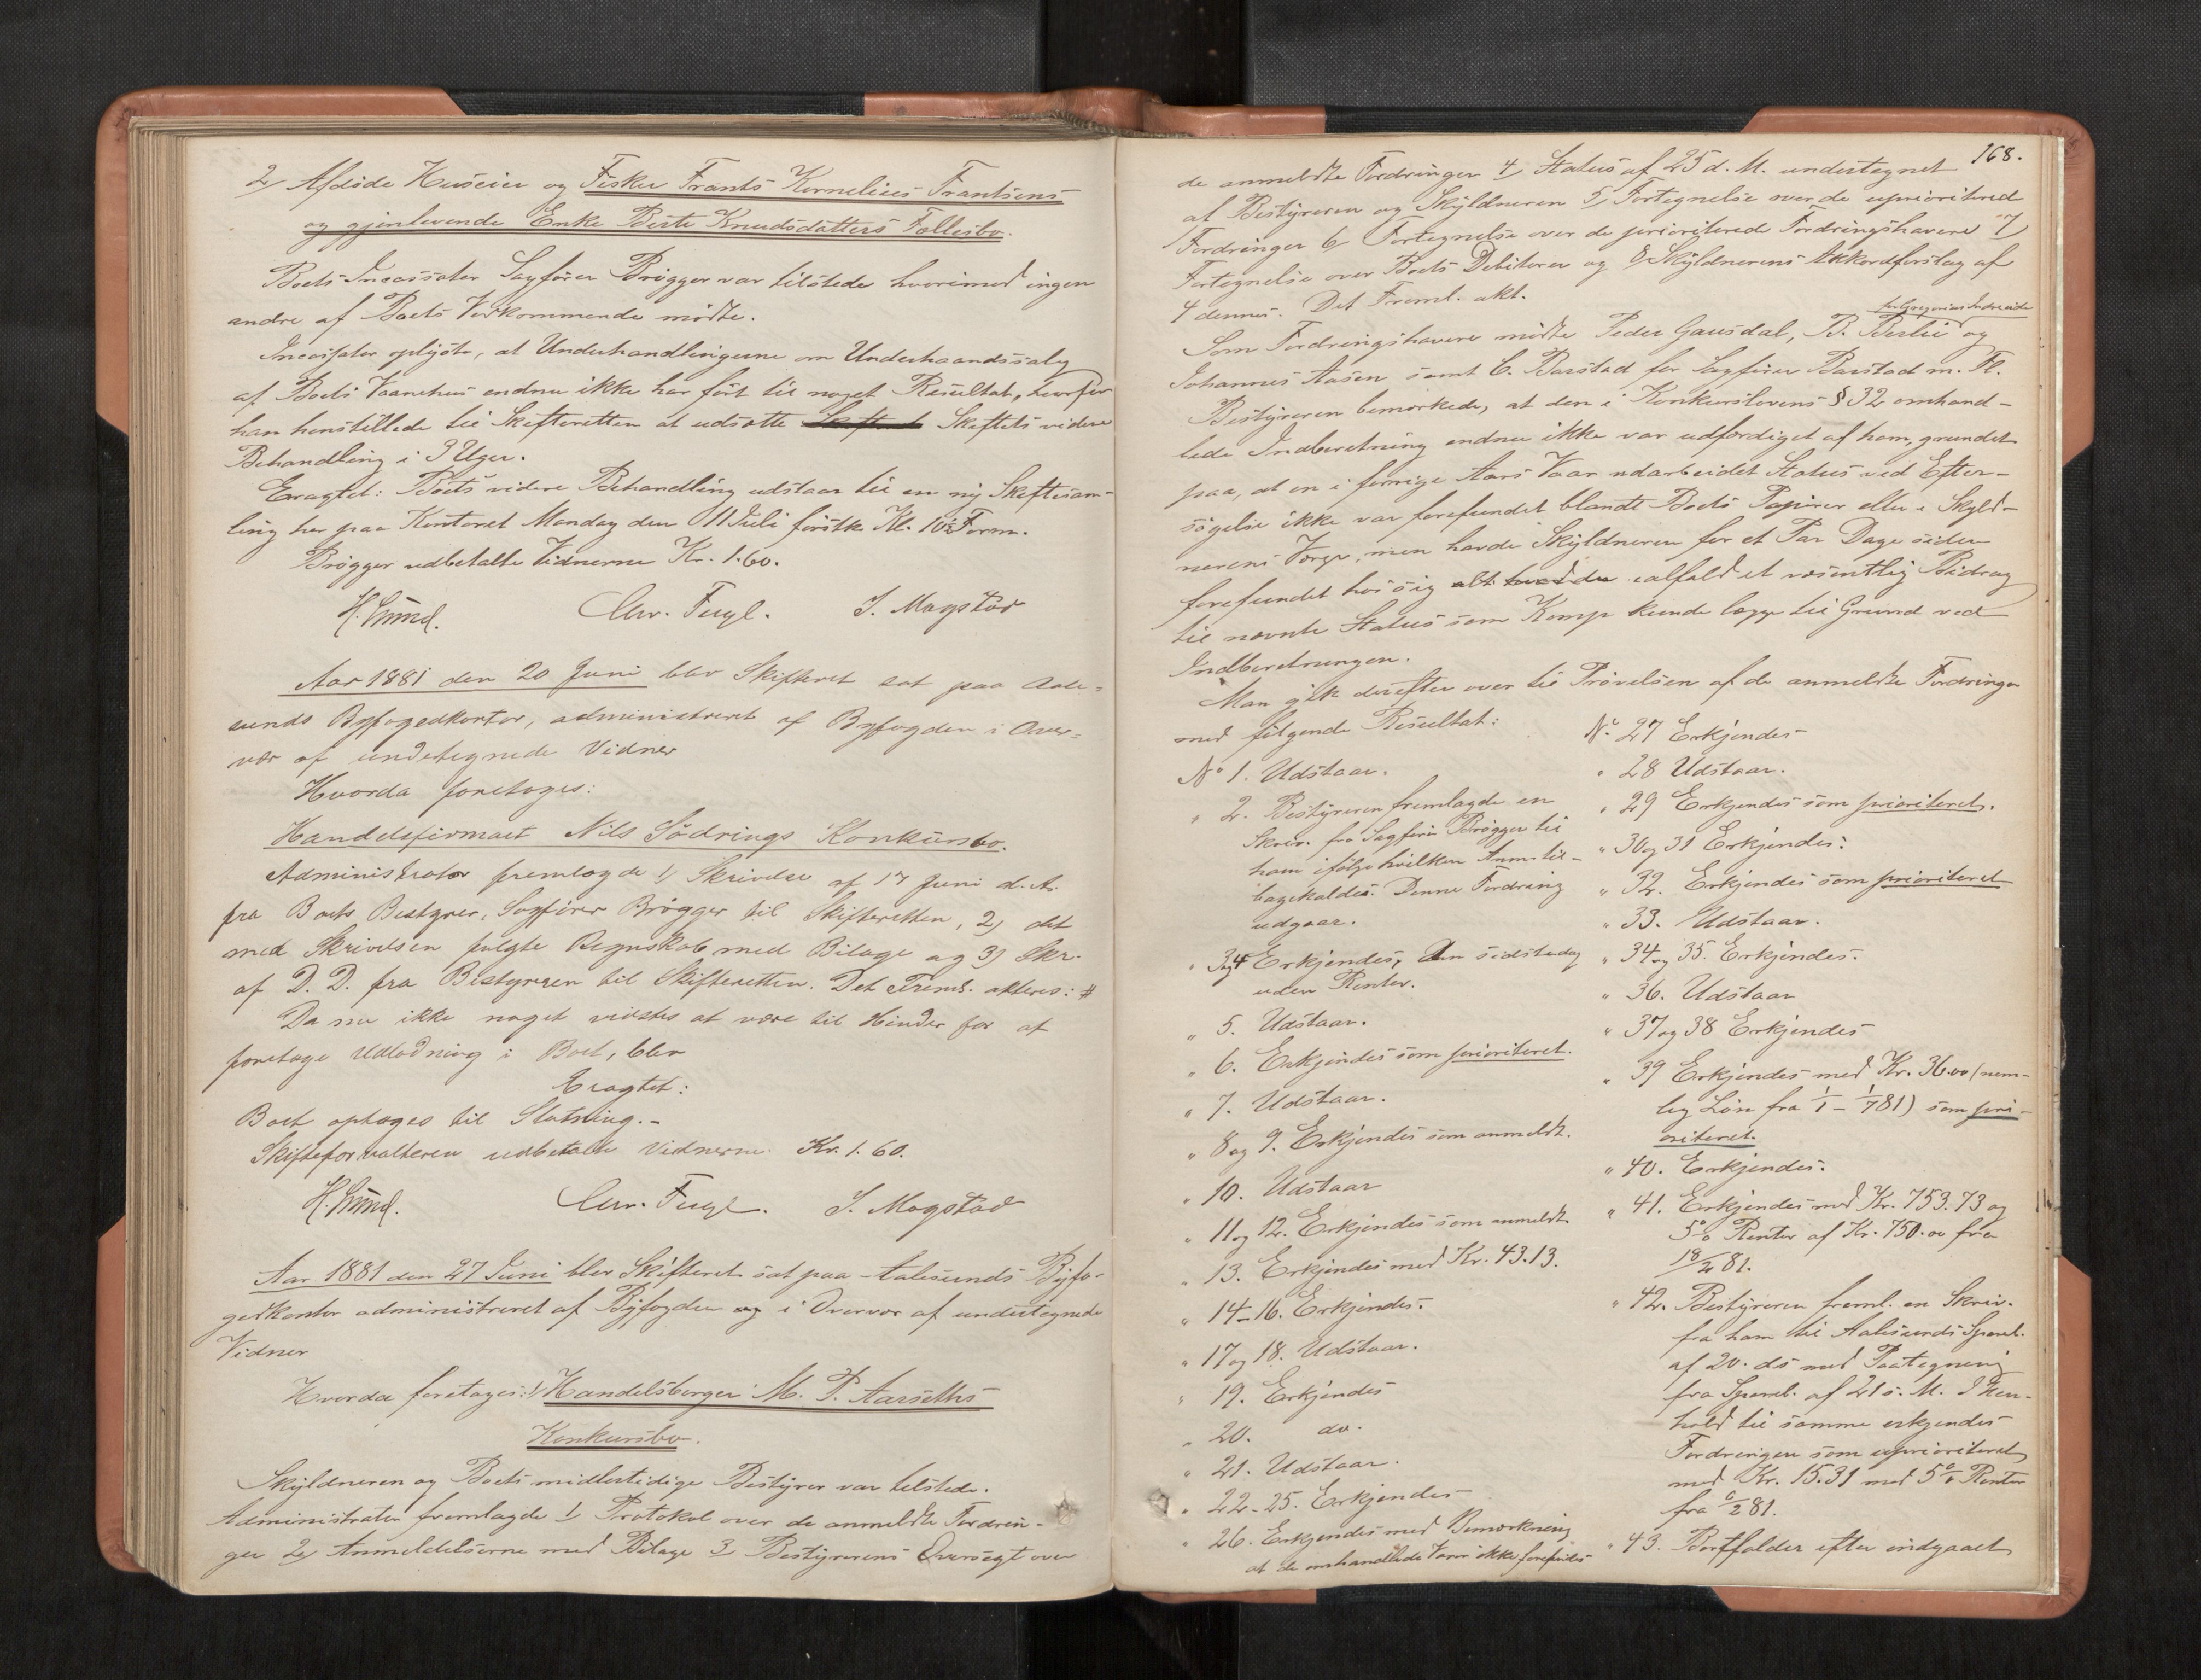 2/ Afdøde Huseier og Fisker Frants Kornelius Frantsens
og gjenlevende Enke Berte Knudsdatters Fællesbo.
Boets Incassator Sagfører Brøgger var tilstede hvorimod ingen
andre af Boets Vedkommende mødte.
Incassator oplyste, at Underhandlingerne om Underhaandssalg
af Boets Vaanehus endnu ikke har ført til noget Resultat, hvorfor
han henstillede til Skifteretten at udsætte Skiftets videre
Behandling i 3 Uger.
Eragtet: Boets videre Behandling udstaar til en ny Skiftesam-
ling her paa Kontoret Mandag den 11 Juli førstk. Kl. 10 Form.
Brøgger udbetalte Vidnerne Kr. 1.60.
Chr. Fugl. S. Magstad
Aar 1881 den 20 Juni blev Skifteret sat paa Aale-
sunds Byfogedkontor, administreret af Byfogden i Over-
vær af undetegnede Vidner
Hvorda foretoges:
Handelsfirmaet Nils Sødrings Konkursbo.
Administrator fremlagde 1/ Skrivelse af 17 Juni d. A.
fra Boets Bestyrer, Sagfører Brøgger til Skifteretten, 2) det
med Skrivelsen fulgte Regnskab med Bilage og 3) Skr.
af D. D. fra Bestyreren til Skifteretten. Det Freml. akteres: #
Da nu ikke noget vidstes at være til Hinder for at
foretage Udlodning i Boet, blev
Eragtet:
Boet optages til Slutning.-
Skifteforvalteren udbetalte Vidnerne Kr. 1.60.
Chr. Fugl. S. Magstad
Aar 1881 den 27 Juni blev Skifteret sat paa Aalesunds Byfo-
gedkontor administreret af Byfogden og i Overvær af undertegnede
Vidner
Hvorda foretoges: 1/ Handelsborger M. P. Aarseths
Konkursbo.
Skyldneren og Boets midlertidige Bestyrer var tilstede.
Administrator fremlagde 1/ Protokol over de anmeldte Fordrin-
ger 2/ Anmeldelserne med Bilage 3/ Bestyrerens Oversigt over
168.
de anmeldte Fordringer 4/ Status af 25 d. M. undertegnet
af Bestyreren og Skyldneren 5/ Fortegnelse over de uprioriterede
Fordringer 6/ Fortegnelse over de prioriterede Fordringshavere 7/
Fortegnelse over Boets Debitorer og 8/ Skyldnerens Akkordforslag af
4 dennes. Det Freml. akt.
for Gregorius Indreeide
Som Fordringshavere mødte Peder Gausdal, B. Berlie og
Johannes Aasen samt C. Barstad for Sagfører Barstad m. Fl.
Bestyreren bemærkede, at den i Konkurslovens § 32 omhand-
lede Indberetning endnu ikke var udfærdiget af ham, grundet
paa, at en i forrige Aars Vaar udarbeidet Status ved Efter-
søgelse ikke var forefundet blandt Boets Papirer eller i Skyld-
nerens Værge, men havde Skyldneren for et Par Dage siden
forefundet hos sig alt hvad der ialfald et væsentlig Bidrag
til nævnte Status som Komp kunde lægge til Grund ved
Indberetningen.
Man gik derefter over til Prøvelsen af de anmeldte Fordringer
med følgende Resultat:
No 1. Udstaar.
" 2. Bestyreren fremlagde en
Skriv. fra Sagfører Brøgger til
ham ifølge hvilken Anm. til-
bagekaldes. Denne Fordring
udgaar.
" 3og4 Erkjendes, den sidste dog
uden Renter.
" 5. Udstaar.
" 6. Erkjendes som prioriteret.
" 7. Udstaar.
" 8 og 9. Erkjendes som anmeldt.
" 10. Udstaar
" 11 og 12. Erkjendes som anmeldt
" 13. Erkjendes med Kr. 43.13.
" 14-16. Erkjendes.
" 17 og 18. Udstaar.
" 19. Erkjendes
" 20. do.
" 21. Udstaar.
" 22-25. Erkjendes
" 26. Erkjendes med Bemærkning
at de omhandlede Varer ikke forefindes
No 27 Erkjendes
" 28 Udstaar.
" 29 Erkjendes som prioriteret.
" 30og 31 Erkjendes.
" 32. Erkjendes som prioriteret
" 33. Udstaar.
" 34og 35. Erkjendes.
" 36. Udstaar
" 37og 38 Erkjendes
" 39 Erkjendes med Kr. 36.00 (nem-
lig Løn fra 1/1 - 1/7 81) som pri-
oriteret.
" 40. Erkjendes.
" 41. Erkjendes med Kr. 753.73 og
5% Renter af Kr. 750.00 fra
18/2 81.
" 42. Bestyreren freml. en Skriv.
fra ham til Aalesunds Spareb.
af 20. ds med Paategning
fra Spareb. af 21 s. M. I Hen-
hold til samme erkjendes
Fordringen som uprioriteret
med Kr. 15.31 med 5% Renter
fra 81.
" 43. Bortfalder efter indgaaet